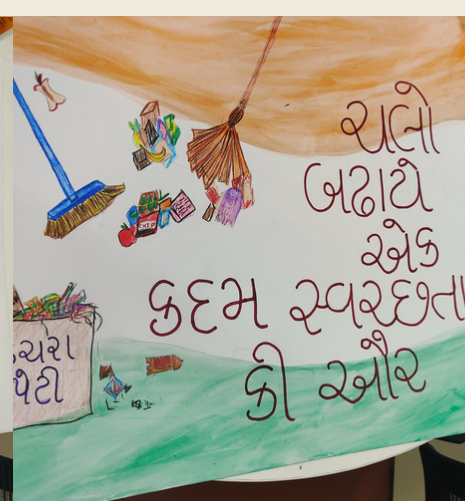 ચલો
બઢાયે
એક
કદમ સ્વચ્છતા
કી ઔર
CHIP
કચરા
પેટી